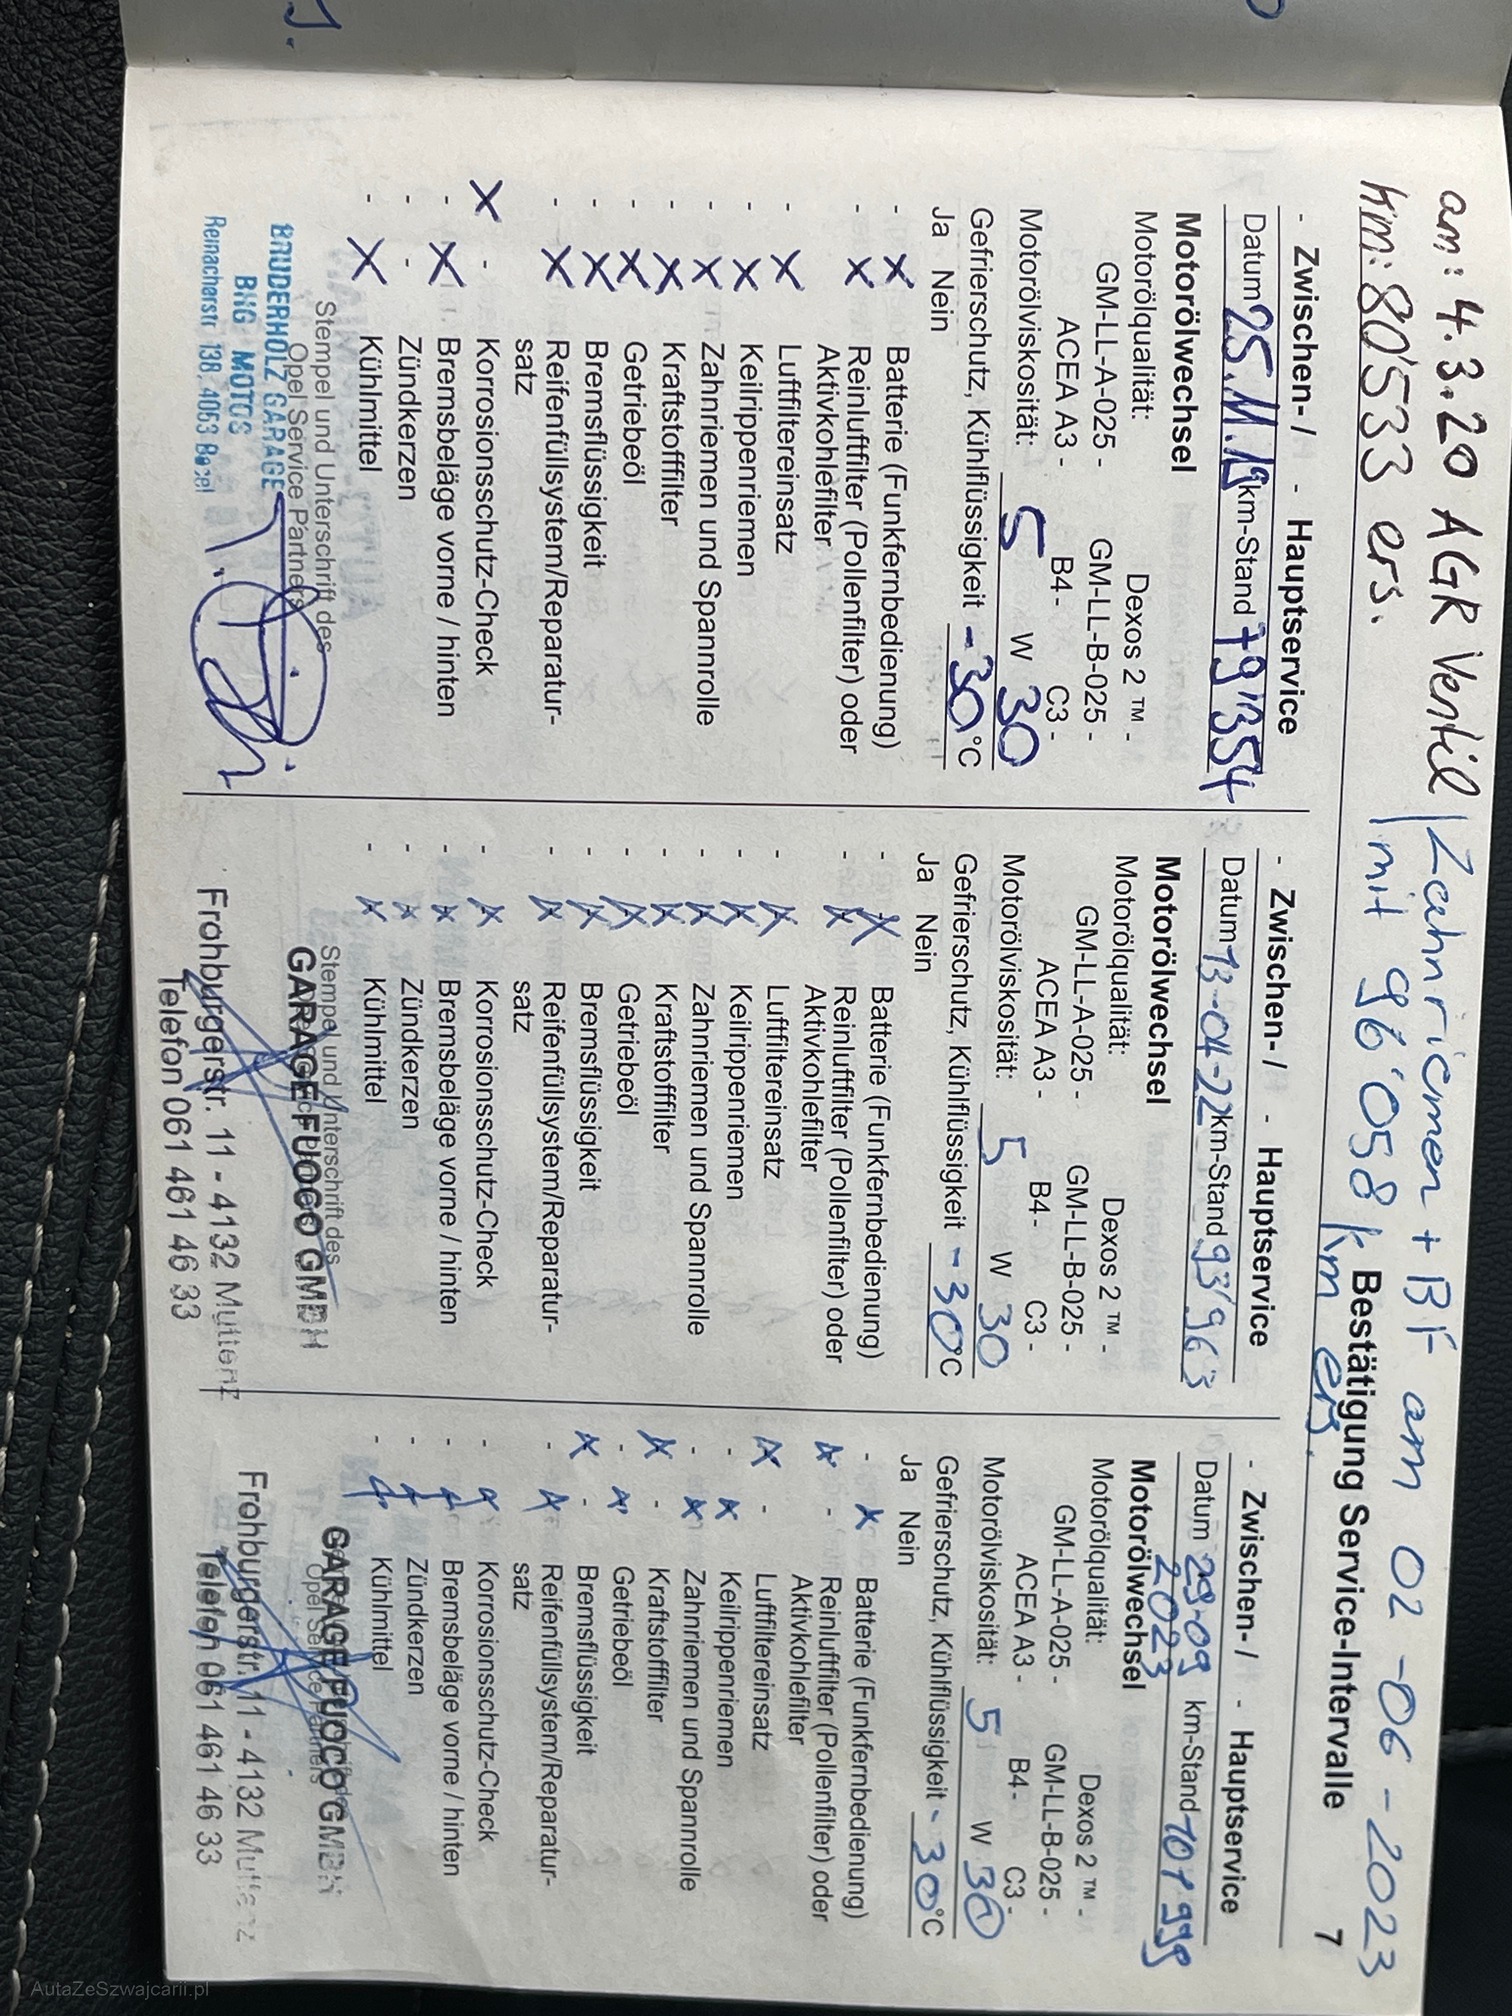 am: 4.3.20 AGR Ventil | Zahnriemen + BF am 02-06-2023
km: 80'533 ers. | mit 96'058 km ers.
Bestätigung Service-Intervalle 7
- Zwischen- / - Hauptservice
Datum 25.11.19 km-Stand 79'354
Motorölwechsel
Motorölqualität: Dexos 2 ™ -
GM-LL-A-025 - GM-LL-B-025 -
ACEA A3 - B4 - C3 -
Motorölviskosität: 5 W 30
Gefrierschutz, Kühlflüssigkeit -30 °C
Ja Nein
- X Batterie (Funkfernbedienung)
- X Reinluftfilter (Pollenfilter) oder
Aktivkohlefilter
- X Luftfiltereinsatz
- X Keilrippenriemen
- X Zahnriemen und Spannrolle
- X Kraftstofffilter
- X Getriebeöl
- X Bremsflüssigkeit
- X Reifenfüllsystem/Reparatur-
satz
X - Korrosionsschutz-Check
- X Bremsbeläge vorne / hinten
- - Zündkerzen
- X Kühlmittel
Stempel und Unterschrift des
Opel Service Partners
BRUDERHOLZ GARAGE
BHG MOTOS
Reinacherstr 138, 4053 Basel
- Zwischen- / - Hauptservice
Datum 13-04-22 km-Stand 93'963
Motorölwechsel
Motorölqualität: Dexos 2 ™ -
GM-LL-A-025 - GM-LL-B-025 -
ACEA A3 - B4 - C3 -
Motorölviskosität: 5 W 30
Gefrierschutz, Kühlflüssigkeit -30 °C
Ja Nein
- X Batterie (Funkfernbedienung)
- X Reinluftfilter (Pollenfilter) oder
Aktivkohlefilter
- X Luftfiltereinsatz
- X Keilrippenriemen
- X Zahnriemen und Spannrolle
- X Kraftstofffilter
- X Getriebeöl
- X Bremsflüssigkeit
- X Reifenfüllsystem/Reparatur-
satz
- X Korrosionsschutz-Check
- X Bremsbeläge vorne / hinten
- X Zündkerzen
- X Kühlmittel
Stempel und Unterschrift des
GARAGE FUOCO GMBH
Frohburgerstr. 11 - 4132 Muttenz
Telefon 061 461 46 33
- Zwischen- / - Hauptservice
Datum 29-09 km-Stand 101 999
2023
Motorölwechsel
Motorölqualität: Dexos 2 ™ -
GM-LL-A-025 - GM-LL-B-025 -
ACEA A3 - B4 - C3 -
Motorölviskosität: 5 W 30
Gefrierschutz, Kühlflüssigkeit -30 °C
Ja Nein
- X Batterie (Funkfernbedienung)
X - Reinluftfilter (Pollenfilter) oder
Aktivkohlefilter
X - Luftfiltereinsatz
- X Keilrippenriemen
- X Zahnriemen und Spannrolle
X - Kraftstofffilter
- X Getriebeöl
X - Bremsflüssigkeit
- X Reifenfüllsystem/Reparatur-
satz
- X Korrosionsschutz-Check
- X Bremsbeläge vorne / hinten
- X Zündkerzen
- X Kühlmittel
GARAGE FUOCO GMBH
Opel Service Partners
Frohburgerstr. 11 - 4132 Muttenz
Telefon 061 461 46 33
AutaZeSzwajcarii.pl